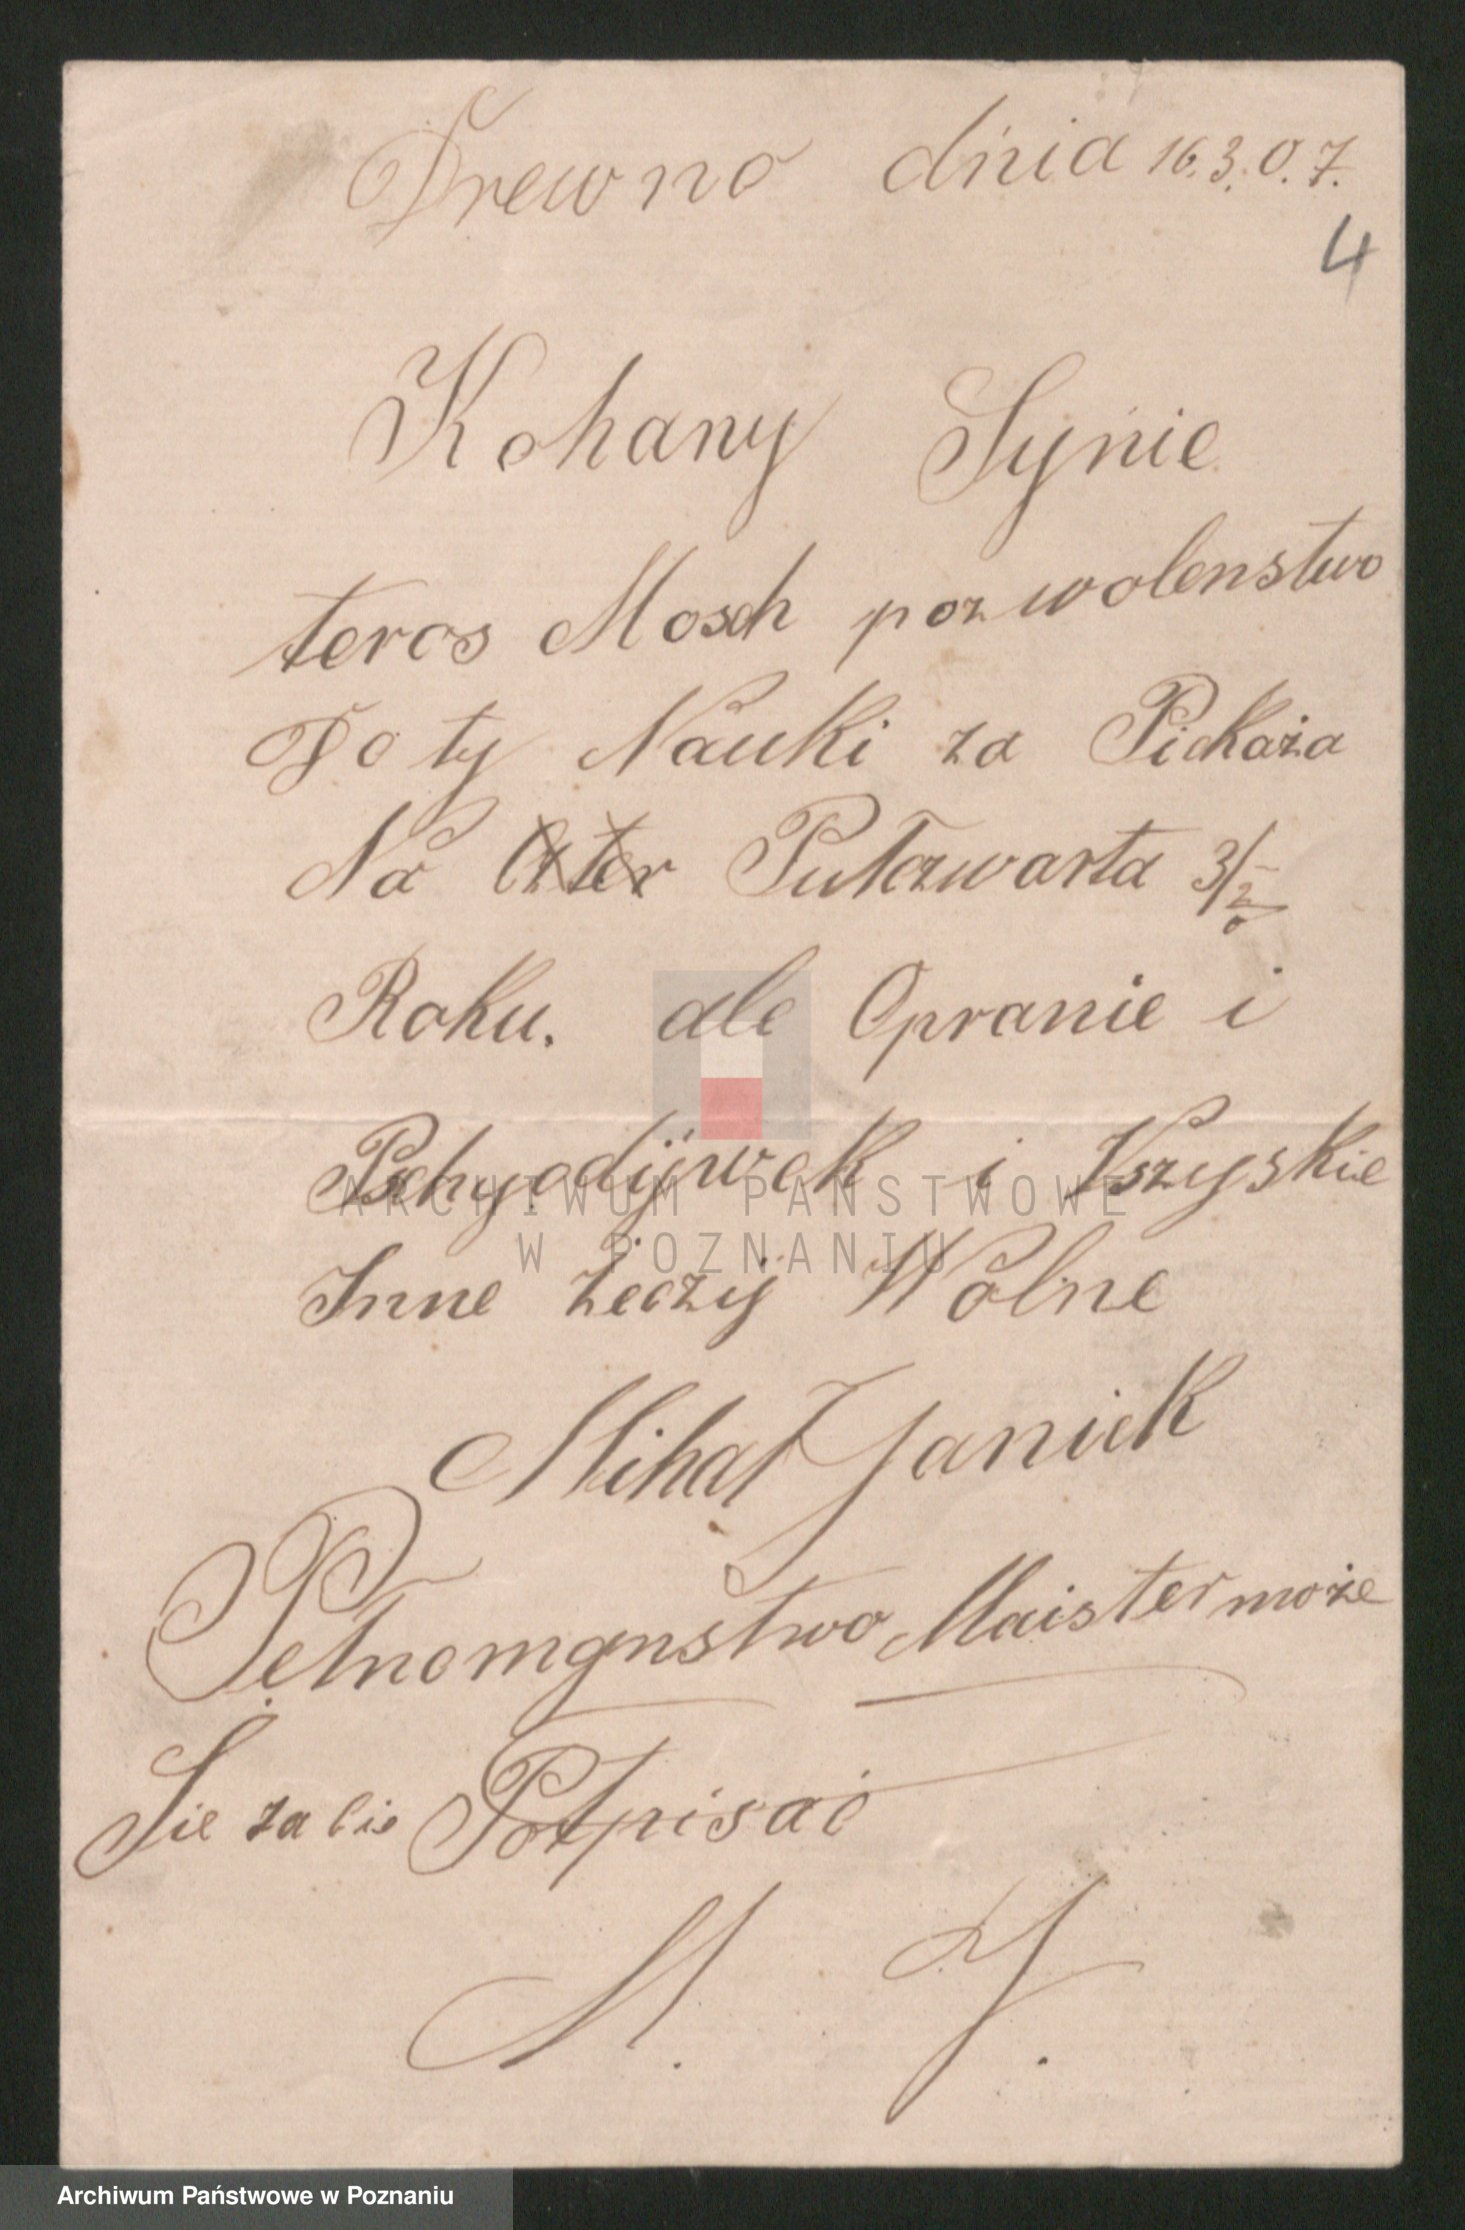 Drewno dńia 16.3.07.
4
Kohany Syńie
teros Mosch pozwolenstwo
Do ty Nauki za Pickaża
Na Czter Pułczwarta 3/2
Roku. ale Opranie i
Pschyodijwek i Wszyskie
Inne żeczÿ Wolne
Mihał Janiek
Pełnomgnstwo Maister może
Sie za Cie Potpisać
M. J.
ARCHIWUM PAŃSTWOWE
W POZNANIU
Archiwum Państwowe w Poznaniu